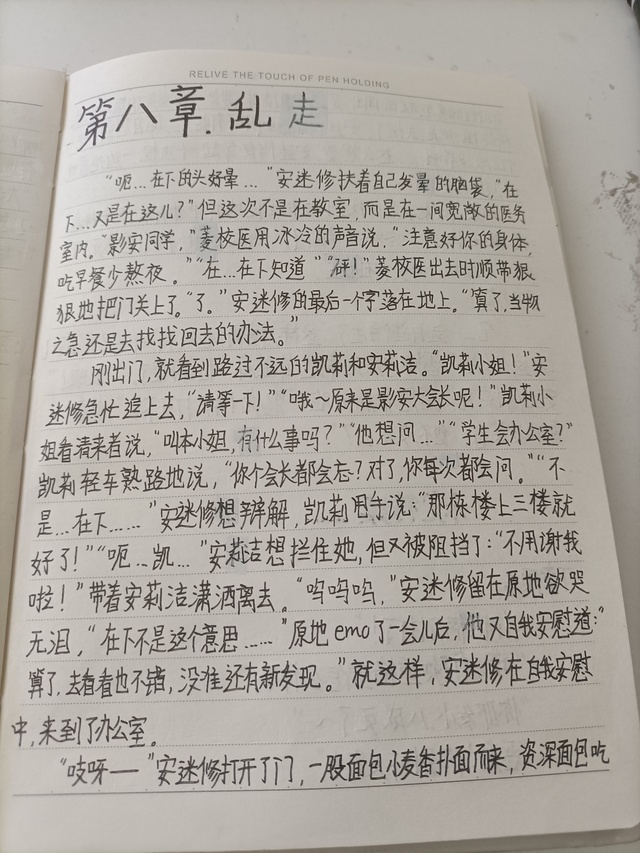 RELIVE THE TOUCH OF PEN HOLDING
第八章.乱走
“呃...在下的头好晕...”安迷修扶着自己发晕的脑袋，“在
下...又是在这儿？”但这次不是在教室，而是在一间宽敞的医务
室内。“影安同学，”菱校医用冰冷的声音说，“注意好你的身体，
吃早餐少熬夜。”“在...在下知道”“砰！”菱校医出去时顺带狠
狠地把门关上了。“了。”安迷修的最后一个字落在地上。“算了，当物
之急还是去找找回去的办法。”
刚出门，就看到路过不远的凯莉和安莉洁。“凯莉小姐！”安
迷修急忙追上去，“请等一下！”“哦～原来是影安大会长呢！”凯莉小
姐看清来者说，“叫本小姐，有什么事吗？”“他想问...”“学生会办公室？”
凯莉轻车熟路地说，“你个会长都会忘？对了，你每次都会问。”“不
是...在下......”安迷修想辩解，凯莉甩手说：“那栋楼上三楼就
好了！”“呃...凯...”安莉洁想拦住她，但又被阻挡了：“不用谢我
啦！”带着安莉洁潇洒离去。“呜呜呜，”安迷修留在原地欲哭
无泪，“在下不是这个意思......”原地emo了一会儿后，他又自我安慰道：“
算了，去看看也不错，没准还有新发现。”就这样，安迷修在自我安慰
中，来到了办公室。
“吱呀——”安迷修打开了门，一股面包小麦香扑面而来，资深面包吃